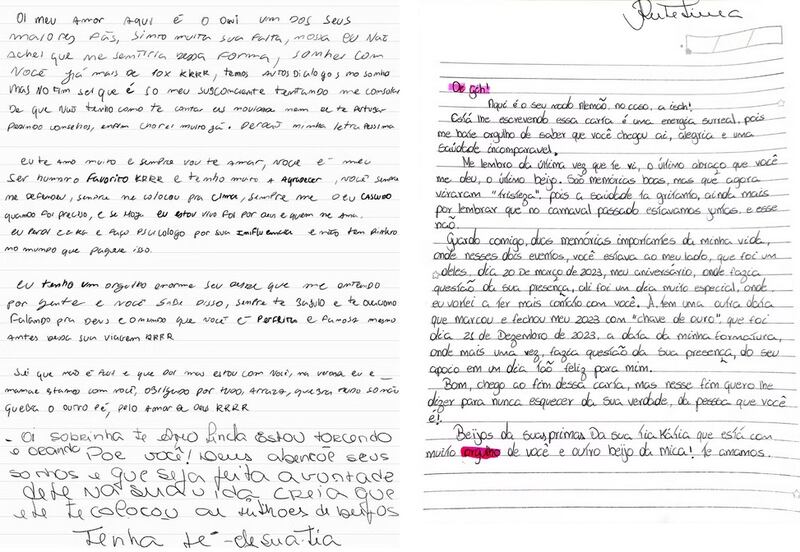 OI MEU AMOR AQUI É O DAVI UM DOS SEUS
MAIORES FÃS, SINTO MUITA SUA FALTA, NOSSA EU NÃO
ACHEI QUE ME SENTIRIA DESSA FORMA, SONHEI COM
VOCÊ JÁ MAIS DE 10X KRRR, TEMOS ALTOS DIALOGOS NO SONHO
MAS NO FIM SEI QUE É SO MEU SUBCONSCIENTE TENTANDO ME CONSOLAR
DE QUE NÃO TENHO COMO TE CONTAR AS NOVIDADES NEM TE
PEDINDO CONSELHOS, ENFIM CHOREI MUITO JÁ. PERDÃO MINHA LETRA PESSIMA
EU TE AMO MUITO E SEMPRE VOU TE AMAR, VOCÊ É MEU
SER HUMANO FAVORITO KRRR E TENHO MUITO A AGRADECER, VOCÊ SEMPRE
ME DEFENDEU, SEMPRE ME COLOCOU PRA CIMA, SEMPRE ME DEU CASCUDO
QUANDO FOI PRECISO, E SE HOJE EU ESTOU VIVO FOI POR DEUS E QUEM ME AMA.
EU PAREI E FAÇO PSICOLOGO POR SUA INFLUENCIA E NÃO TEM DINHEIRO
NO MUNDO QUE PAGUE ISSO.
EU TENHO UM ORGULHO ENORME SEU QUE ME
POR GENTE E VOCÊ SABE DISSO, SEMPRE TE E TE
FALANDO PRA DEUS E O MUNDO QUE VOCÊ É PERFEITA E FAMOSA MESMO
ANTES DESSA SUA VIAGEM KRRR
SEI QUE NÃO É FACIL E QUE DOI MAS ESTOU COM VOCÊ, NA VERDADE EU E
MAMAE ESTAMOS COM VOCÊ, OBRIGADO POR TUDO, ARRAZA, QUEBRA TUDO SO NÃO
QUEBRA O OUTRO PÉ, PELO AMOR DE DEUS KRRR
- Oi sobrinha te amo linda estou torcendo
e orando Por você! Deus abençoe seus
sonhos e que seja feita a vontade
dele na sua vida creia que
ele te colocou ai milhoes de beijos
Tenha fé - de sua tia
Rute Lima
Oi Gih!
Aqui é o seu nodo alemão, no caso, a isch!
Está me escrevendo essa carta é uma energia surreal, pois
me bate orgulho de saber que você chegou ai, alegria e uma
saudade incomparavel.
Me lembro da última vez que te vi, o último abraço que você
me deu, o último beijo. São memórias boas, mas que agora
viraram "tristeza", pois a saudade ta gritante, ainda mais
por lembrar que no carnaval passado estavamos juntas, e esse
não.
Guardo comigo, duas memórias importantes da minha vida,
onde nesses dois eventos, você estava ao meu lado, que foi um
deles, dia 20 de março de 2023, meu aniversário, onde fazia
questão da sua presença, ali foi um dia muito especial, onde
eu voltei a ter mais contato com você. A tem uma outra data
que marcou e fechou meu 2023 com "chave de ouro", que foi
dia 21 de Dezembro de 2023, a data da minha formatura,
onde mais uma vez, fazia questão da sua presença, do seu
apoio em um dia tão feliz para mim.
Bom, chego ao fim dessa carta, mas nesse fim quero lhe
dizer para nunca esquecer da sua verdade, da pessoa que você
é!
Beijos da suas primas. Da sua tia Kátia que está com
muito orgulho de você e outro beijo da mica! Te amamos.